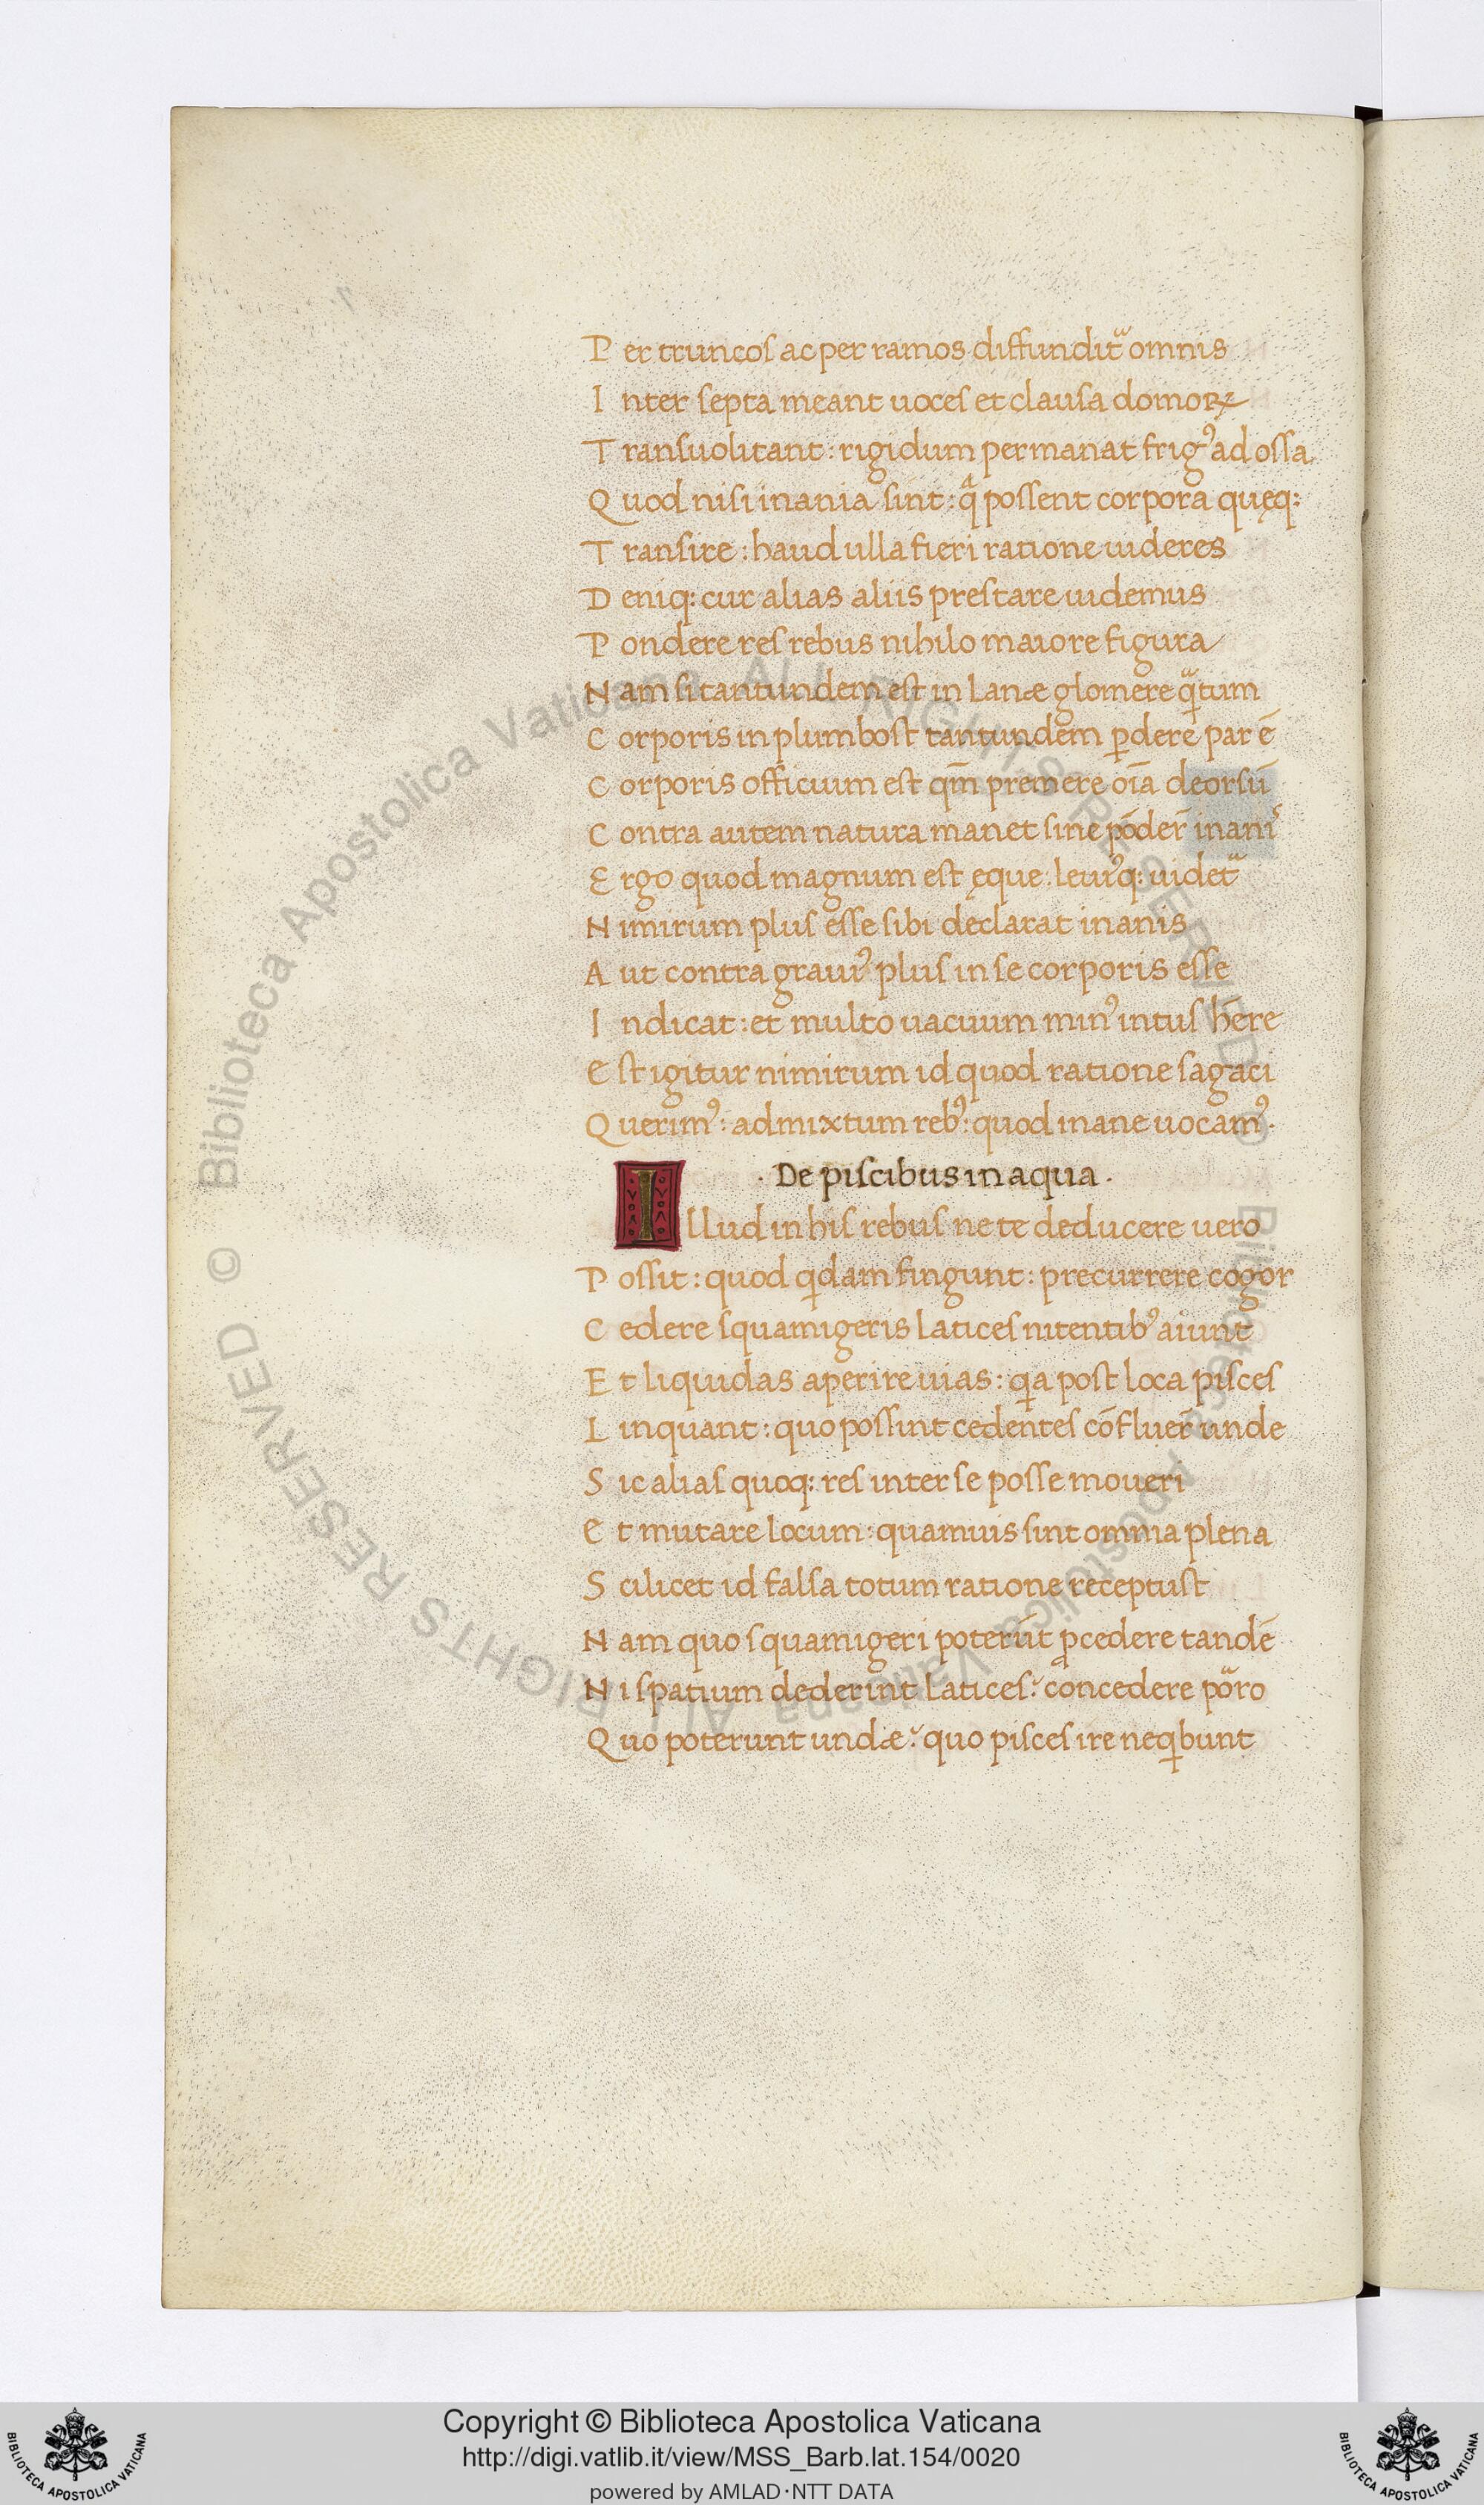 Per truncos ac per ramos diffunditᷓ omnis
Inter septa meant uoces et clausa domoꝝ
Transuolitant: rigidum permanat frigꝰ ad ossa
Quod nisi inania sint: qᷓ possent corpora quęq:
Transire: haud ulla fieri ratione uideres
Deniq: cur alias aliis prestare uidemus
Pondere res rebus nihilo maiore figura
Nam si tantundem est in lanæ glomere qᷓtum
Corporis in plumbost tantundem ꝑdere par ē
Corporis officium est qm̄ premere oīa deorsū
Contra autem natura manet sine pōder̄ inaniˢ
Ergo quod magnum est ęque: leuiꝰq: uidetᷓ
Nimirum plus esse sibi declarat inanis
Aut contra grauiꝰ plus in se corporis esse
Indicat: et multo uacuum minꝰ intus hēre
Est igitur nimirum id quod ratione sagaci
Querimꝰ: admixtum rebꝰ: quod inane uocamꝰ.
. De piscibus in aqua .
Illud in his rebus ne te deducere uero
Possit: quod qdam fingunt: precurrere cogor
Cedere squamigeris latices nitentibꝰ aiunt
Et liquidas aperire uias: qa post loca pisces
Linquant: quo possint cedentes cōfluer̄ unde
Sic alias quoq: res inter se posse moueri
Et mutare locum: quamuis sint omnia plena
Scilicet id falsa totum ratione receptust
Nam quo squamigeri poterūt ꝓcedere tandē
Ni spatium dederint latices? concedere poᷓro
Quo poterunt undæ? quo pisces ire neqbunt
© Biblioteca Apostolica Vaticana ALL RIGHTS RESERVED © Biblioteca Apostolica Vaticana ALL RIGHTS RESERVED
Copyright © Biblioteca Apostolica Vaticana
http://digi.vatlib.it/view/MSS_Barb.lat.154/0020
powered by AMLAD·NTT DATA
BIBLIOTECA APOSTOLICA VATICANA
BIBLIOTECA APOSTOLICA VATICANA